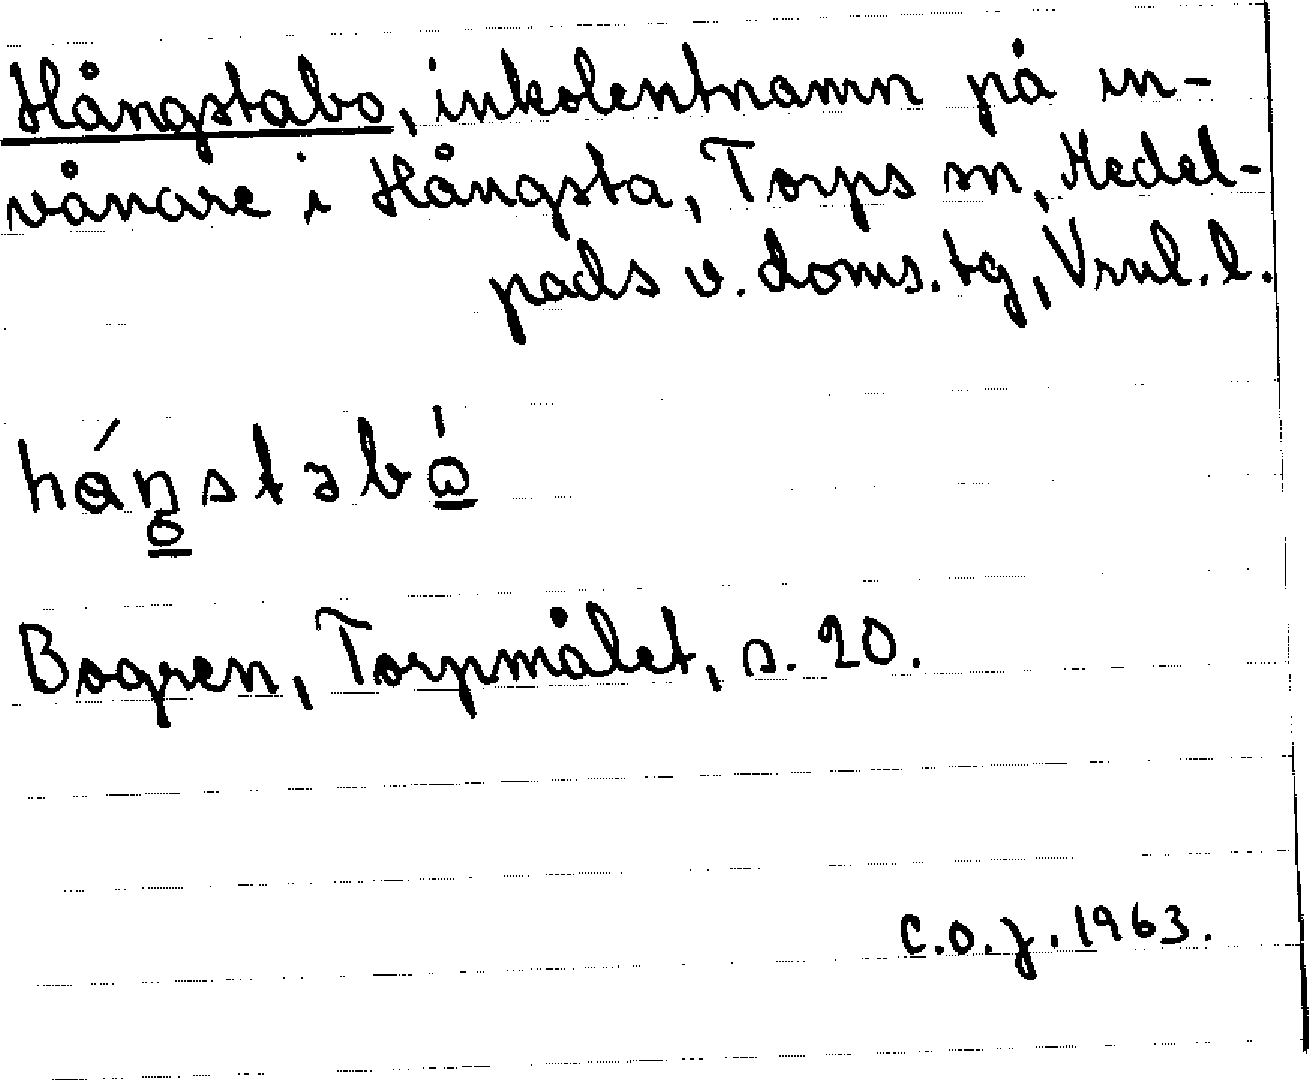 Hångstabo, inkolentnamn på in-
vånare i Hångsta, Torps sn, Medel-
pads v. doms. tg, Vrnl. l.
Bogren, Torpmålet, s. 20.
C.O.J. 1963.